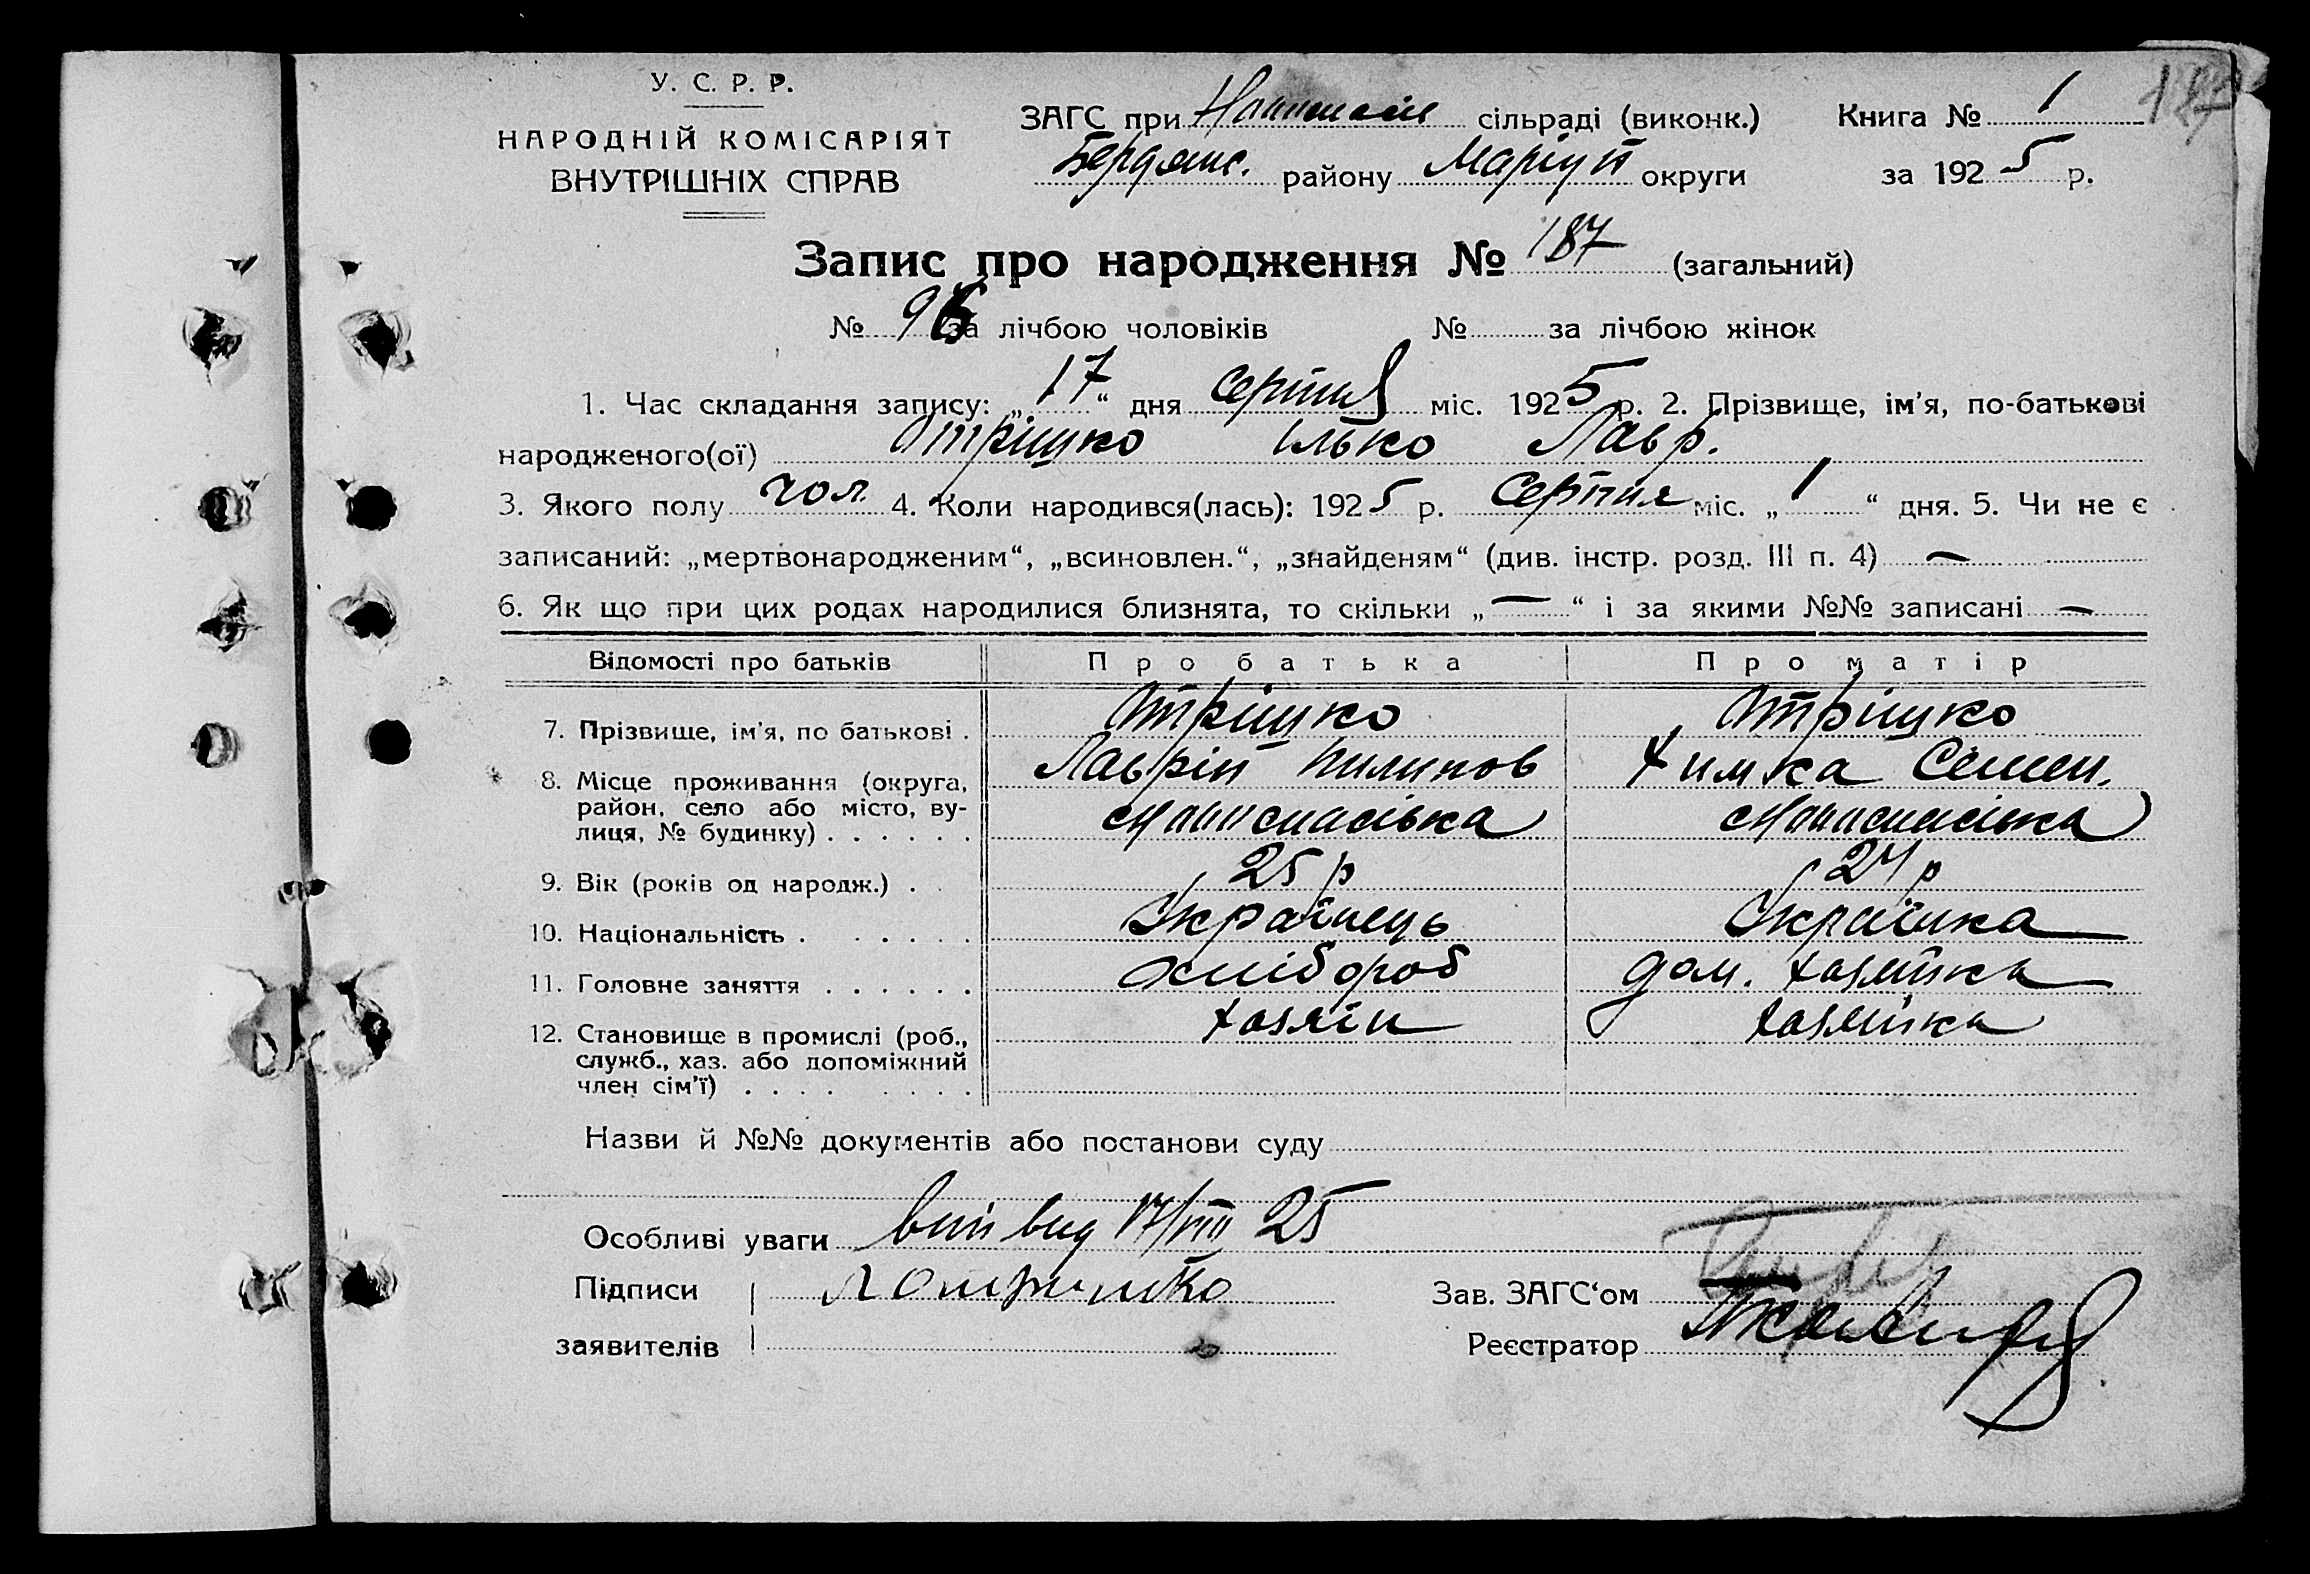 У. С. Р. Р.
НАРОДНІЙ КОМІСАРІЯТ
ВНУТРІШНІХ СПРАВ
ЗАГС при сільраді (виконк.) Книга № 1
Бердянс. району Маріуп округи за 1925 р.
Запис про народження № 187 (загальний)
№ 96 за лічбою чоловіків № за лічбою жінок
1. Час складання запису: „17“ дня Серпня міс. 1925 р. 2. Прізвище, ім'я, по-батькові
народженого(ої) Отрішко Ілько Лавр.
3. Якого полу чол. 4. Коли народився(лась): 1925 р. Серпня міс. „1“ дня. 5. Чи не є
записаний: „мертвонародженим“, „всиновлен.“, „знайденям“ (див. інстр. розд. III п. 4) —
6. Як що при цих родах народилися близнята, то скільки „—“ і за якими №№ записані —
Відомості про батьків Про батька Про матір
7. Прізвище, ім'я, по батькові . Отрішко Отрішко
Лавріп Пилипов Химка Семен.
8. Місце проживання (округа,
район, село або місто, ву-
лиця, № будинку) . . . . . . Мапоспасівка Мапоспасівка
9. Вік (років од народж.) . . 25 р 24 р
10. Національність . . . . . . Українець Українка
11. Головне заняття . . . . . . Хлібороб дом. хазяйка
12. Становище в промислі (роб., хазяїн хазяйка
служб., хаз. або допоміжний
член сім'ї) . . . . . . . .
Назви й №№ документів або постанови суду
Особливі уваги вид 17/VIII 25
Підписи Л Отришко Зав. ЗАГС'ом
заявителів Реєстратор